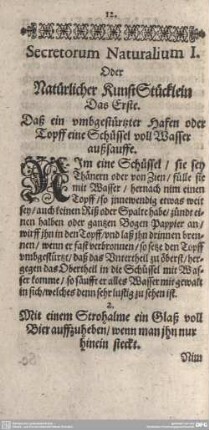 12.
Secretorum Naturalium I.
Oder
Natürlicher KunstStücklein
Das Erste.
Daß ein vmbgestürtzter Hafen oder
Topff eine Schüssel voll Wasser
außsauffe.
NIm eine Schüssel / sie sey
Thänern oder von Zien / fülle sie
mit Wasser / hernach nim einen
Topff / so innewendig etwas weit
sey / auch keinen Riß oder Spalte habe / zünde ei-
nen halben oder gantzen Bogen Pappier an /
wirff ihn in den Topff / vnd laß jhn drinnen bren-
nen / wenn er fast verbronnen / so setze den Topff
vmbgestürtzt / daß das Vntertheil zu öberst / her-
gegen das Obertheil in die Schüssel mit Was-
ser komme / so säufft er alles Wasser mit gewalt
in sich / welches denn sehr lustig zu sehen ist.
2.
Mit einem Strohalme ein Glaß voll
Bier auffzuheben / wenn man jhn nur
hinein steckt.
Nim